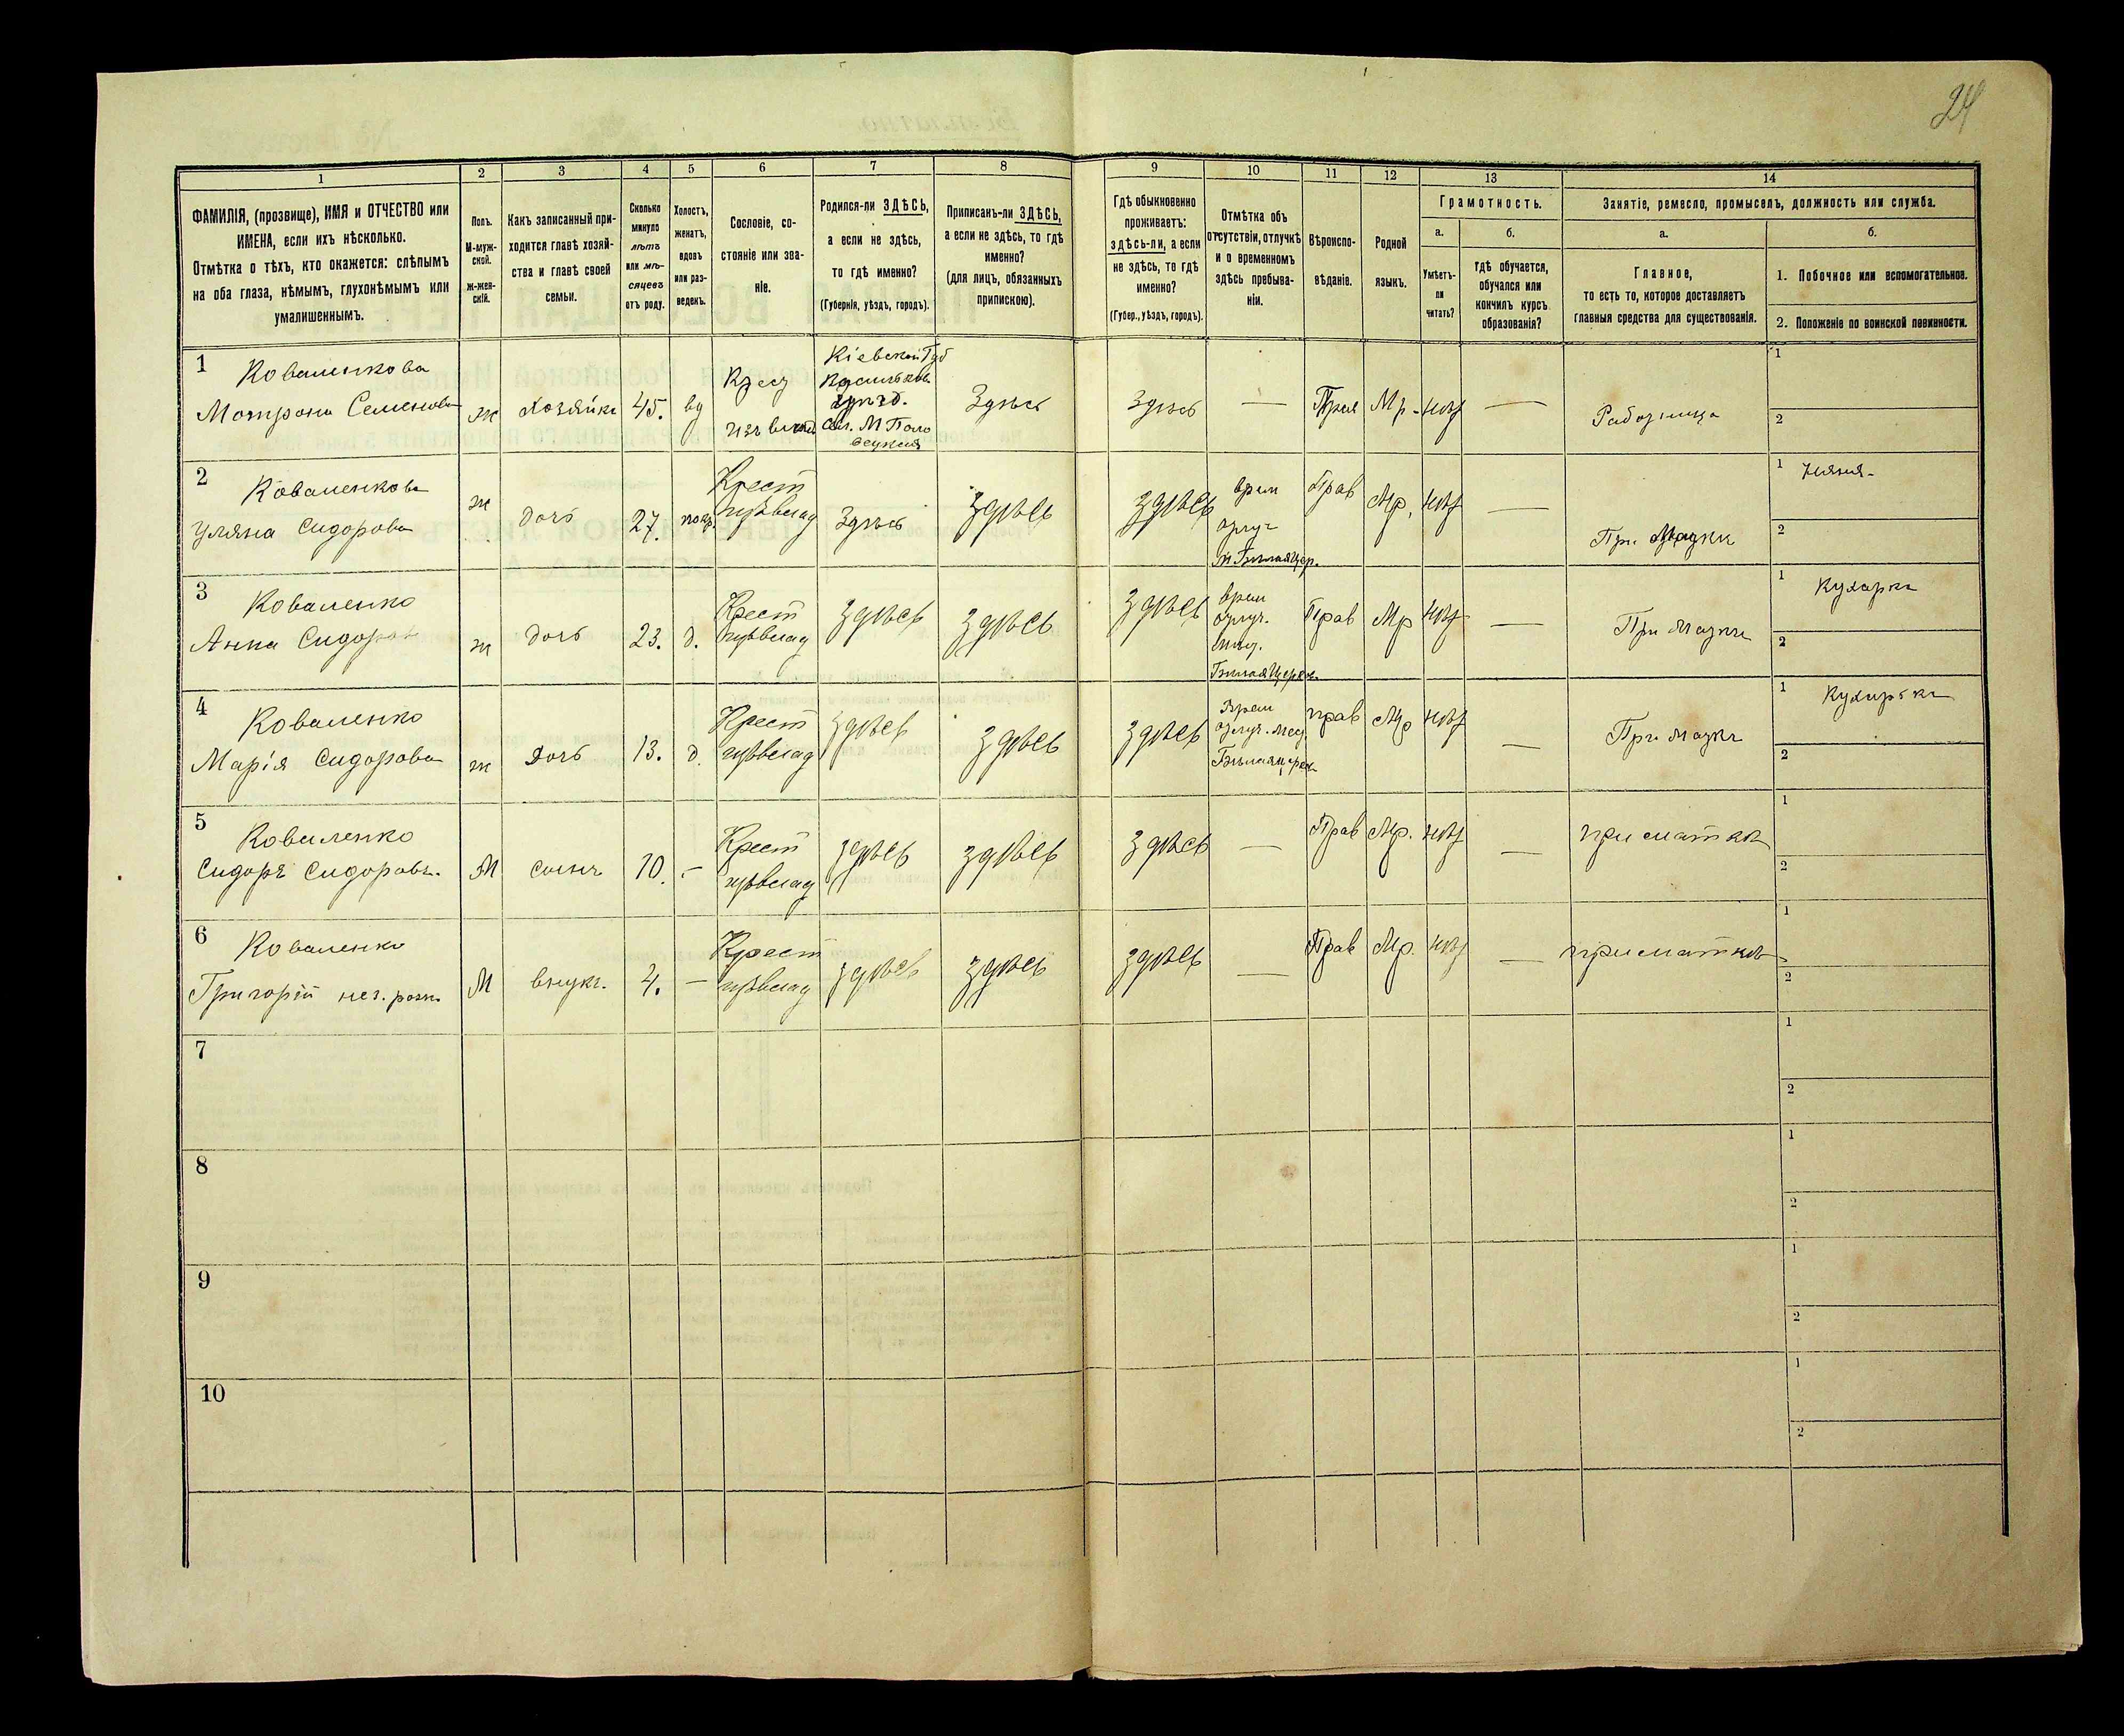 24
1
2
3
4
5
6
7
8
9
10
11
12
13
14
ФАМИЛІЯ, (прозвище), ИМЯ и ОТЧЕСТВО или
ИМЕНА, если ихъ нѣсколько.
Отмѣтка о тѣхъ, кто окажется: слѣпымъ
на оба глаза, нѣмымъ, глухонѣмымъ или
умалишеннымъ.
Полъ.
М-муж-
ской.
Ж-жен-
скій.
Какъ записанный при-
ходится главѣ хозяй-
ства и главѣ своей
семьи.
Сколько
минуло
лѣтъ
или мѣ-
сяцевъ
отъ роду.
Холостъ,
женатъ,
вдовъ
или раз-
веденъ.
Сословіе, со-
стояніе или зва-
ніе.
Родился-ли ЗДѢСЬ,
а если не здѣсь,
то гдѣ именно?
(Губернія, уѣздъ, городъ).
Приписанъ-ли ЗДѢСЬ,
а если не здѣсь, то гдѣ
именно?
(для лицъ, обязанныхъ
припискою).
Гдѣ обыкновенно
проживаетъ:
здѣсь-ли, а если
не здѣсь, то гдѣ
именно?
(Губер., уѣздъ, городъ).
Отмѣтка объ
отсутствіи, отлучкѣ
и о временномъ
здѣсь пребыва-
ніи.
Вѣроиспо-
вѣданіе.
Родной
языкъ.
Грамотность.
а.
Умѣетъ-
ли
читать?
б.
гдѣ обучается,
обучался или
кончилъ курсъ
образованія?
Занятіе, ремесло, промыселъ, должность или служба.
а.
Главное,
то есть то, которое доставляетъ
главныя средства для существованія.
б.
1. Побочное или вспомогательное.
2. Положеніе по воинской повинности.
1
Коваленкова
Мотрона Семенова
ж
Хозяйка
45.
вд
Крест
изъ влад
Кіевской Губ
Васильков.
уѣзд.
Здѣсь
Здѣсь
—
Прав
Мр.
нѣт
—
Работница
1
2
2
Коваленкова
Уляна Сидорова
ж
дочь
27.
покр.
Крест
изъ влад
Здѣсь
Здѣсь
Здѣсь
врем
отлуч
м Бѣлая Цер.
Прав
Мр.
нѣт
—
При Матки
1
Няня
2
3
Коваленко
Анна Сидоров
ж
дочь
23.
д.
Крест
изъ влад
Здѣсь
Здѣсь
Здѣсь
врем
отлуч.
Бѣлая Церк.
Прав
Мр
нѣт
—
При Матки
1
Кухарка
2
4
Коваленко
Марія Сидорова
ж
дочь
13.
д.
Крест
изъ влад
Здѣсь
Здѣсь
Здѣсь
Врем
отлуч. мес
Бѣлая церк.
прав
Мр
нѣт
—
При Матки
1
Кухарка
2
5
Коваленко
Сидоръ Сидоровъ.
М
сынъ
10.
–
Крест
изъ влад
здѣсь
здѣсь
здѣсь
—
Прав
Мр.
нѣт
—
при матки
1
2
6
Коваленко
Григорій нез. рожд.
М
внукъ.
4.
–
Крест
изъ влад
здѣсь
здѣсь
здѣсь
—
Прав
Мр.
нѣт
—
при матки
1
2
7
1
2
8
1
2
9
1
2
10
1
2